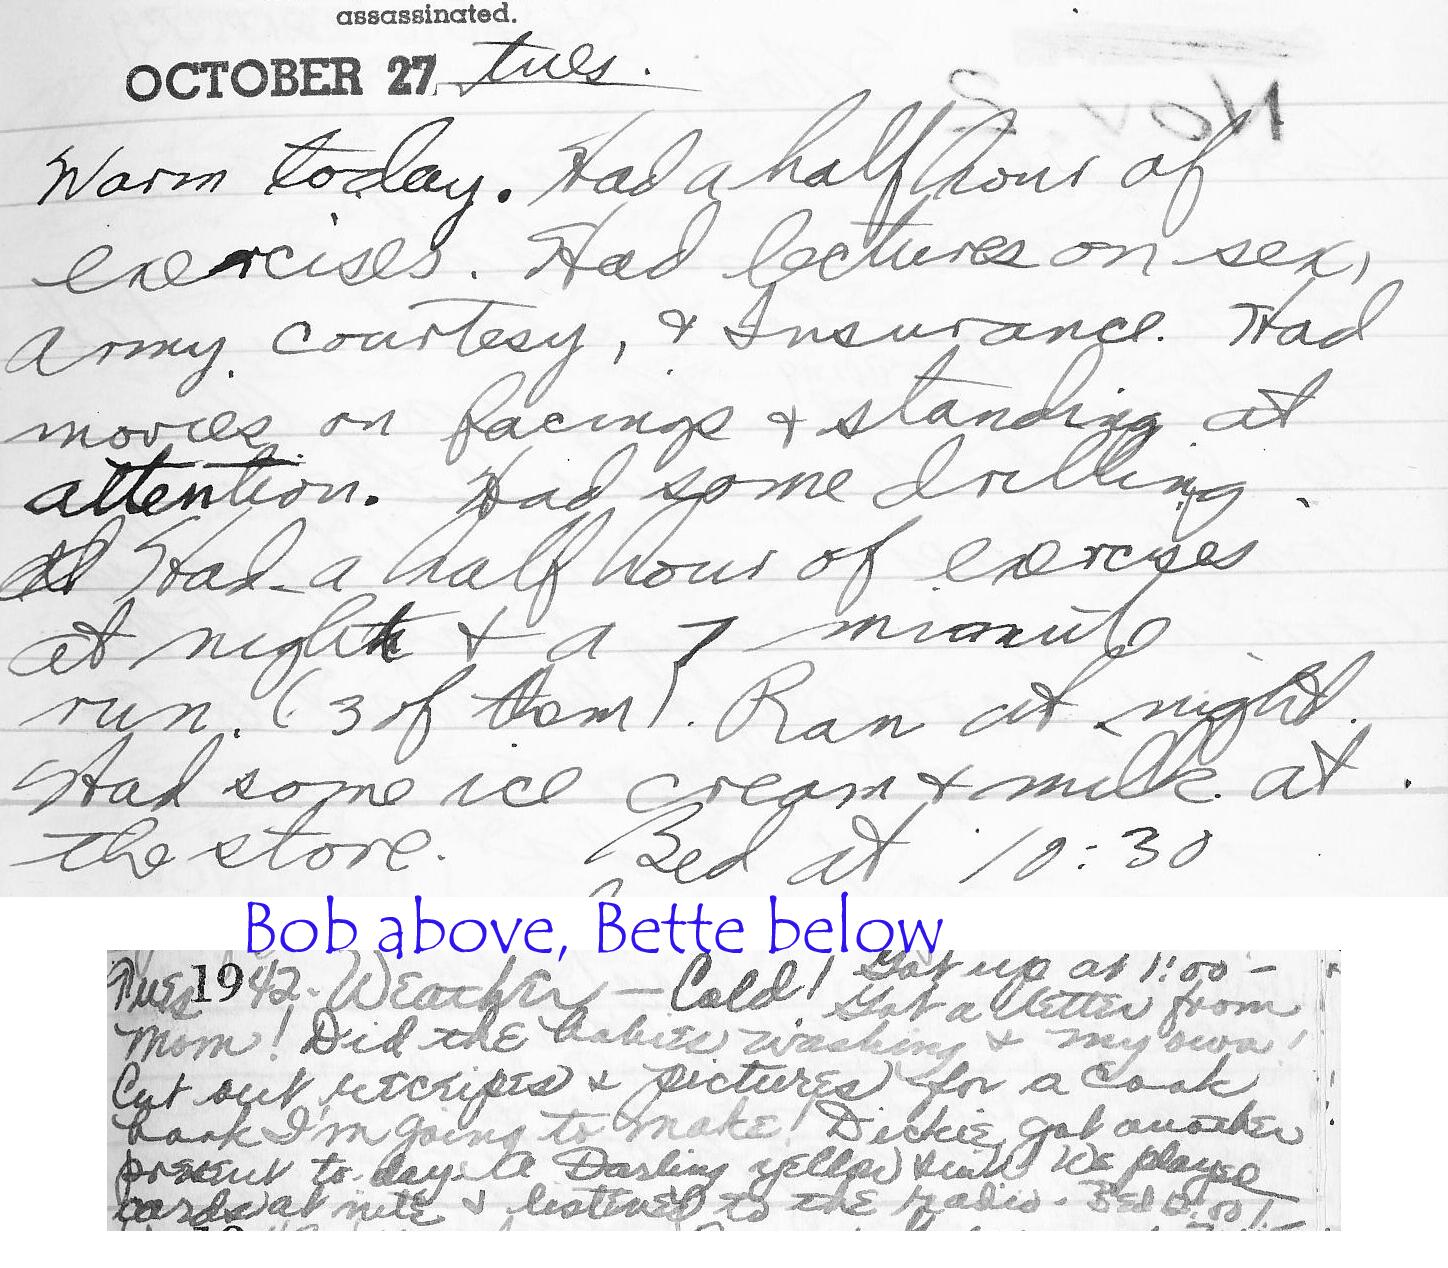 assassinated.
OCTOBER 27 tues.
Nov. 2
Warm today. Had a half hour of
exercises. Had lectures on sex,
army courtesy, & Insurance. Had
movies on facings & standing at
attention. Had some drilling.
Had a half hour of exercises
at night & a 7 minute
run. (3 of them). Ran at night.
Had some ice cream & milk at
the store. Bed at 10:30
Bob above, Bette below
Tues 1942. Weather — Cold! Got up at 1:00 —
Got a letter from
Mom! Did the babies washing & my own!
Cut out reciepes & pictures for a cook
book I'm going to make! Dickie got another
present to-day. A Darling yellow suit. We played
cards at nite & listened to the radio. Bed